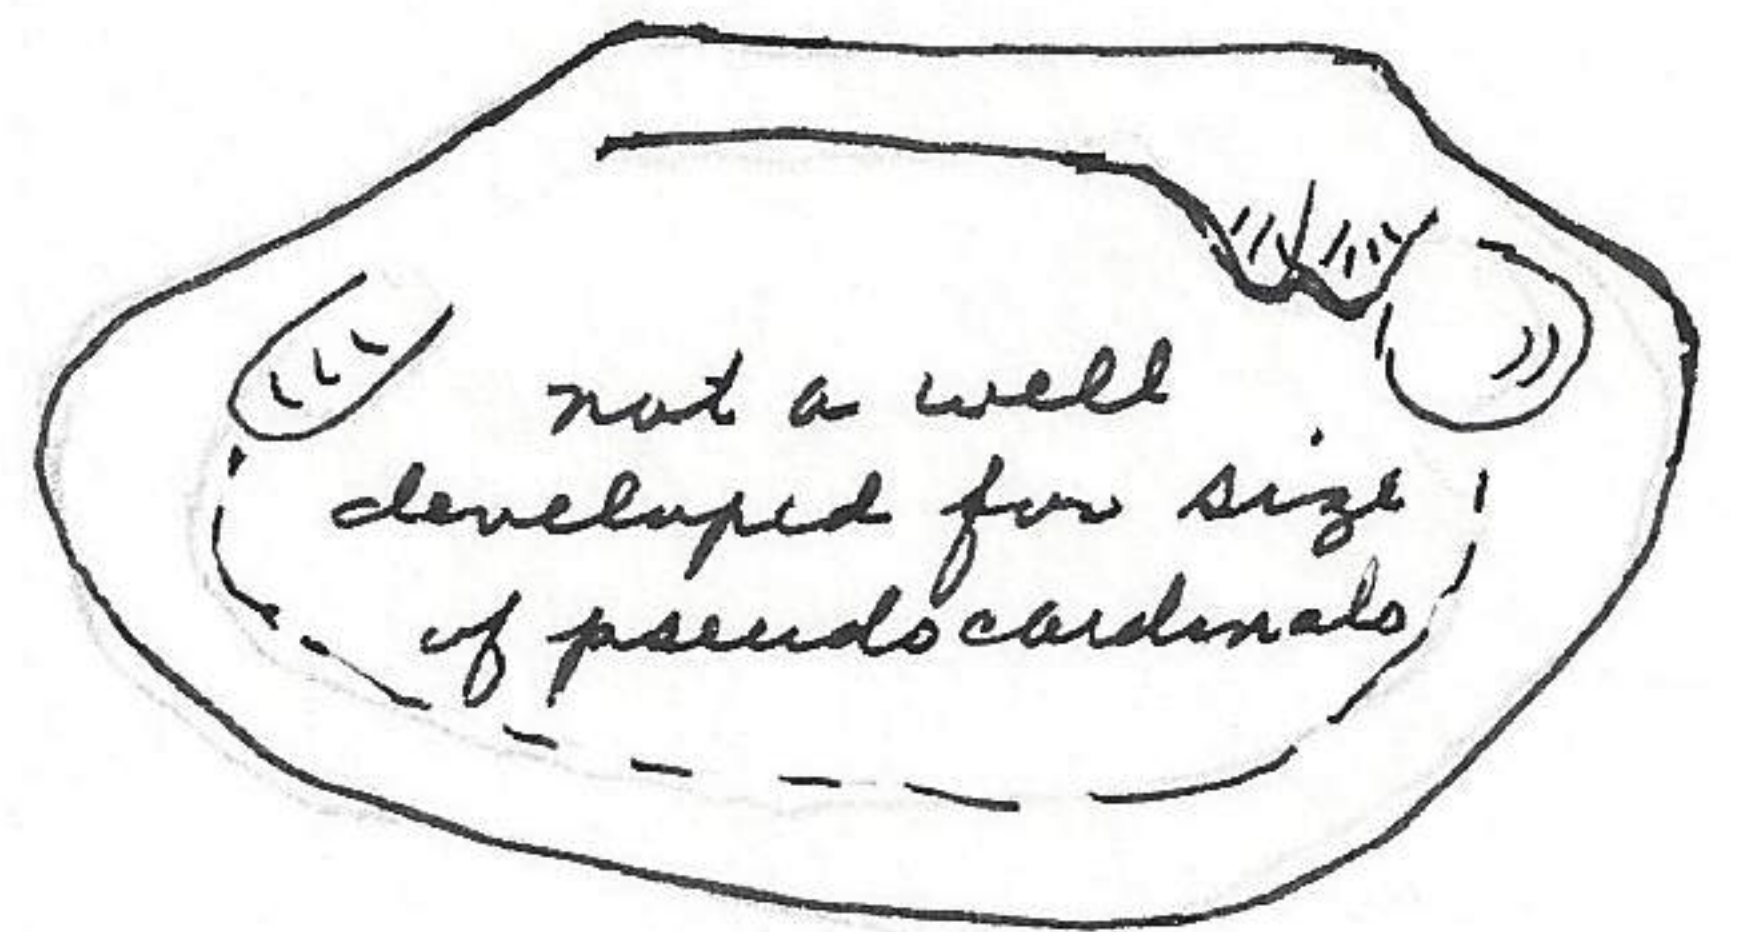 not a well
developed for size
of pseudocardinals